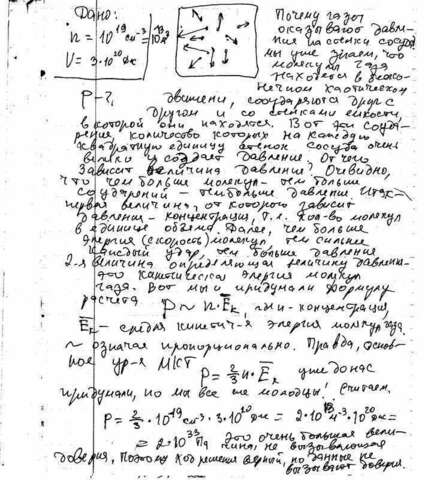 Дано:
n = 10¹⁹ см⁻³ = 10 м⁻³
V = 3·10²⁰ Дж
P – ?
Почему газы
оказывают давле-
ние на стенки сосуда
мы уже знаем, что
молекулы газа
находятся в беско-
нечном хаотическом
движении, соударяются друг с
другом и со стенками емкости,
в которой они находятся. Вот эти соуда-
рения, количество которых на каждую
квадратную единицу стенок сосуда очень
велико и создает давление. От чего
зависит величина давления? Очевидно,
что чем больше молекул – тем больше
соударений – тем больше давление. Итак –
первая величина, от которого зависит
давление – концентрация, т.е. кол-во молекул
в единице объема. Далее, чем больше
энергия (скорость) молекул, тем сильнее
каждый удар, тем больше давление
2-я величина определяющая величину давления –
это кинетическая энергия молекул
газа. Вот мы и придумали формулу
расчета P ~ n·E̅ₖ, n – концентрация,
E̅ₖ – средняя кинетич-я энергия молекул газа
~ означает пропорционально. Правда, основ-
ное ур-я МКТ P = 2/3 n·E̅ₖ уже до нас
придумали, но мы все же молодцы! Считаем.
P = 2/3·10¹⁹ см⁻³·3·10²⁰ Дж = 2·10¹³ м⁻³·10²⁰ Дж =
= 2·10³³ Па это очень большая вели-
чина, не вызывающая
доверия, поэтому ход решения верный, но данные не
вызывают доверия.